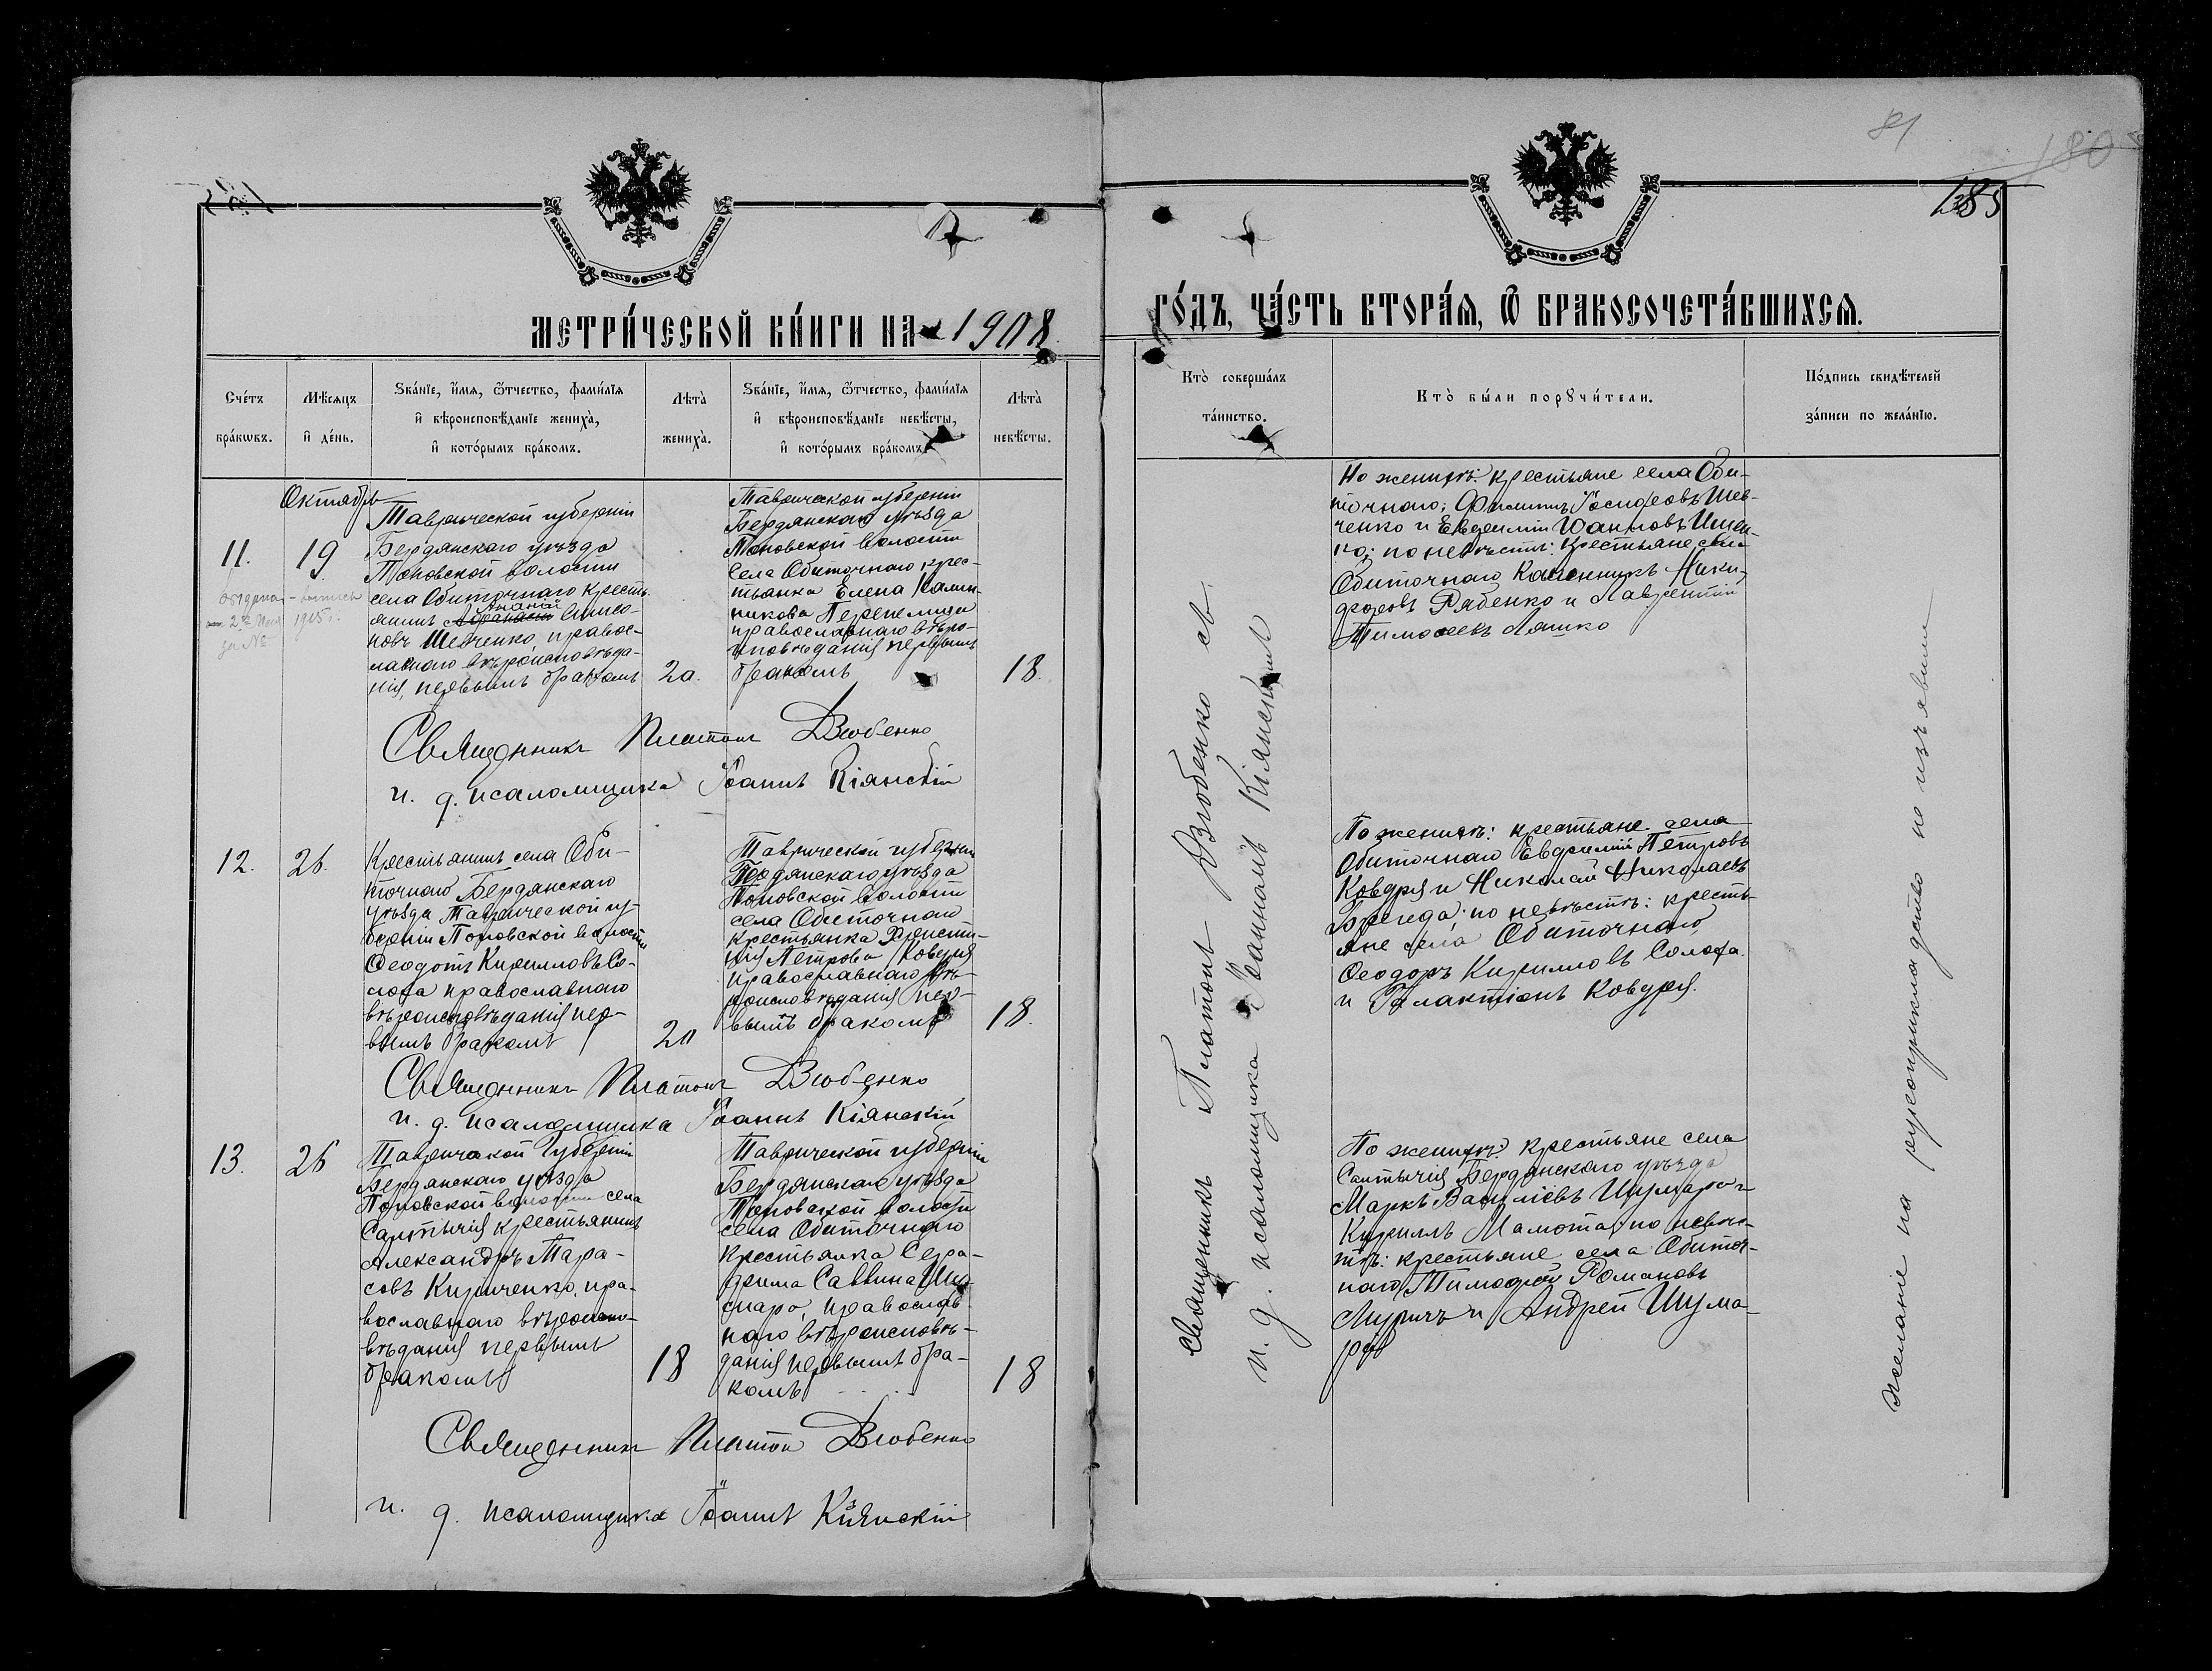 81
180
185
МЕТРИ́ЧЕСКОЙ КНИ́ГИ НА 1908
ГО́ДЪ, ЧА́СТЬ ВТОРА́Я, Ѿ БРАКОСОЧЕТА́ВШИХСЯ.
Сче́тъ
бра́кѡвъ.
Мѣ́сяцъ
и де́нь.
Ѕва́нїе, и́мя, ѿтчество, фами́лїя
и вѣроисповѣ́данїе жениха̀,
и кото́рымъ бра́комъ.
Лѣта̀
жениха̀.
Ѕва́нїе, и́мя, ѿтчество, фами́лїя
и вѣроисповѣ́данїе невѣ́сты,
и кото́рымъ бра́комъ
Лѣта̀
невѣ́сты.
Кто̀ соверша́лъ
та́инство.
Кто̀ бы́ли порꙋчи́тели.
По́дпись свидѣ́телей
за́писи по жела́нїю.
Октябрь
11.
19
Таврической губерніи
Бердянскаго уѣзда
Поповской волости
села Обиточнаго кресть-
янинъ Ананій Симео-
новъ Шевченко, правос-
лавнаго вѣроисповѣда-
нія, первымъ бракомъ
20.
Таврической губерніи
Бердянскаго уѣзда
Поповской волости
села Обиточнаго крес-
тьянка Елена Калин-
никова Перепелица
православнаго вѣро-
исповѣданія первымъ
бракомъ
18.
По женихѣ: крестьяне села Оби-
точнаго; Филиппъ Іосифовъ Шев-
ченко и Евфимій Іоанновъ
по невѣстѣ: крестьяне села
Обиточнаго Калинникъ Ники-
форовъ Рябенко и Лаврентій
Тимоѳеевъ Ляшко
Священникъ Платонъ Дзюбенко
и. д. псаломщика Іоаннъ Кіянскій
12.
26.
Крестьянинъ села Оби-
точнаго Бердянскаго
уѣзда Таврической гу-
берніи Поповской волости
Ѳеодотъ Кирилловъ Со-
лоха православнаго
вѣроисповѣданія пер-
вымъ бракомъ
20
Таврической губерніи
Бердянскаго уѣзда
Поповской волости
села Обиточнаго
крестьянка
Петрова Ковдря
православнаго вѣ-
роисповѣданія пер-
вымъ бракомъ
18.
По женихѣ: крестьяне села
Обиточнаго Евфимій Петровъ
Ковдря и Николай Николаевъ
по невѣстѣ: кресть-
яне села Обиточнаго
Ѳеодоръ Кирилловъ Солоха
и Галактіонъ Ковдря.
Священникъ Платонъ Дзюбенко
и. д. псаломщика Іоаннъ Кіянскій
13.
26
Таврической губерніи
Бердянскаго уѣзда
Поповской волости села
Салтычія крестьянинъ
Александръ Тара-
совъ Кириченко, пра-
вославнаго вѣроиспо-
вѣданія первымъ
бракомъ
18
Таврической губерніи
Бердянскаго уѣзда
Поповской волости
села Обиточнаго
крестьянка Сера-
фима Саввина
православ-
наго вѣроисповѣ-
данія первымъ бра-
комъ
18
По женихѣ: крестьяне села
Салтычія Бердянскаго уѣзда
Маркъ Василіевъ
Кириллъ Мамота; по невѣс-
тѣ: крестьяне села Обиточ-
наго Тимофей Романовъ
и Андрей Шума-
Священникъ Платонъ Дзюбенко
и. д. псаломщика Іоаннъ Кіянскій
Священникъ Платонъ Дзюбенко съ
и. д. псаломщика Іоанномъ Кіянскимъ
желаніе на рукоприкладство не изъявили